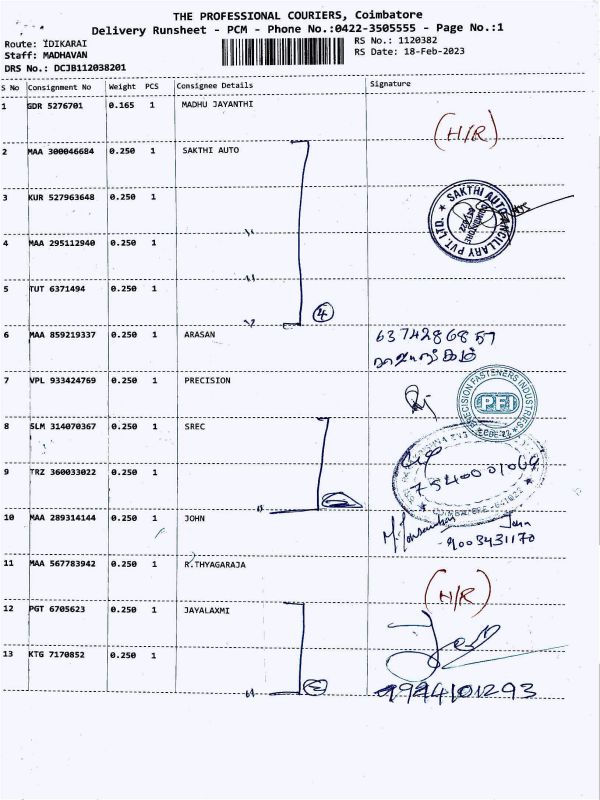 THE PROFESSIONAL COURIERS, Coimbatore
Delivery Runsheet - PCM - Phone No.:0422-3505555 - Page No.:1
Route: IDIKARAI
Staff: MADHAVAN
DRS No.: DCJB112038201
RS No.: 1120382
RS Date: 18-Feb-2023
S No Consignment No Weight PCS Consignee Details Signature
1 GDR 5276701 0.165 1 MADHU JAYANTHI
(H/R)
2 MAA 300046684 0.250 1 SAKTHI AUTO
3 KUR 527963648 0.250 1
SAKTHI AUTO ANCILLARY PVT. LTD.
4 MAA 295112940 0.250 1
5 TUT 6371494 0.250 1
4
6 MAA 859219337 0.250 1 ARASAN 6374286857
7 VPL 933424769 0.250 1 PRECISION
PRECISION FASTENERS INDUSTRIES
PFI
8 SLM 314070367 0.250 1 SREC
9 TRZ 360033022 0.250 1
7540001069
10 MAA 289314144 0.250 1 JOHN
9003431170
11 MAA 567783942 0.250 1 R.THYAGARAJA
(H/R)
12 PGT 6705623 0.250 1 JAYALAXMI
13 KTG 7170852 0.250 1
9994101293